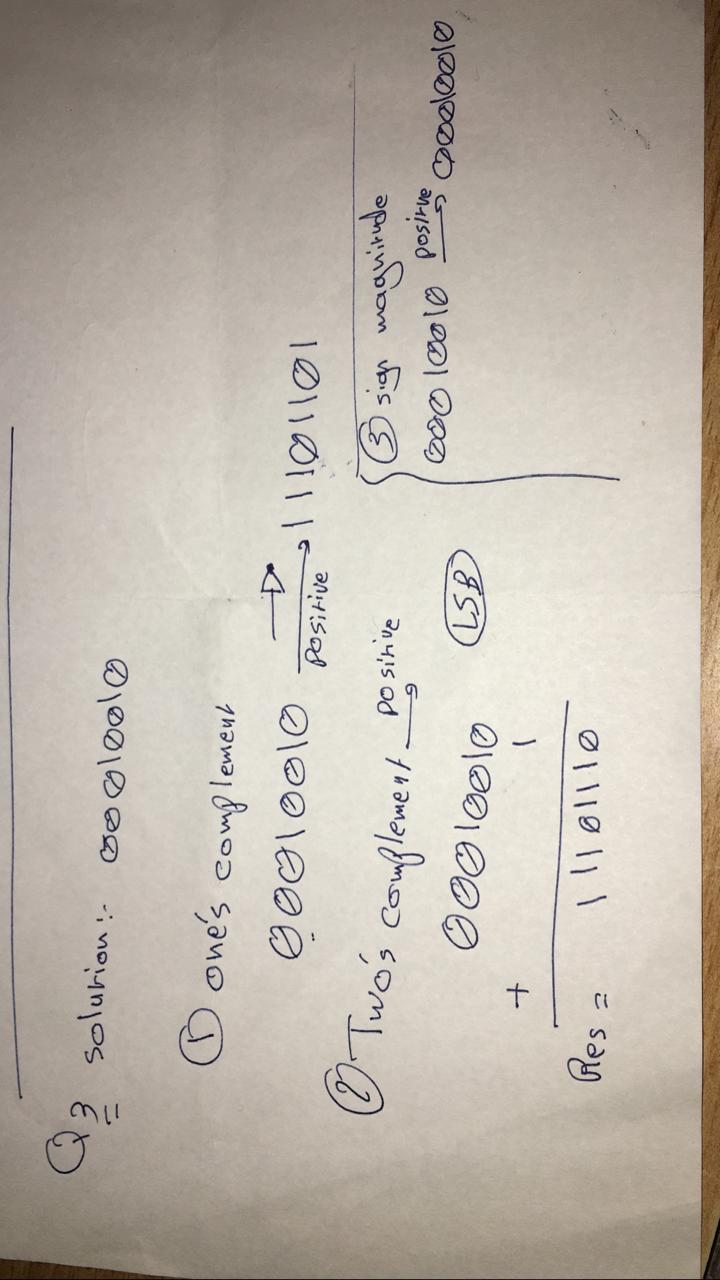 Q3 solution:- 00010010
① one's complement
00010010 → positive → 11101101
② Two's complement → positive
00010010 LSB
+ 1
Res = 11101110
③ sign magnitude
00010010 positive → 00010010